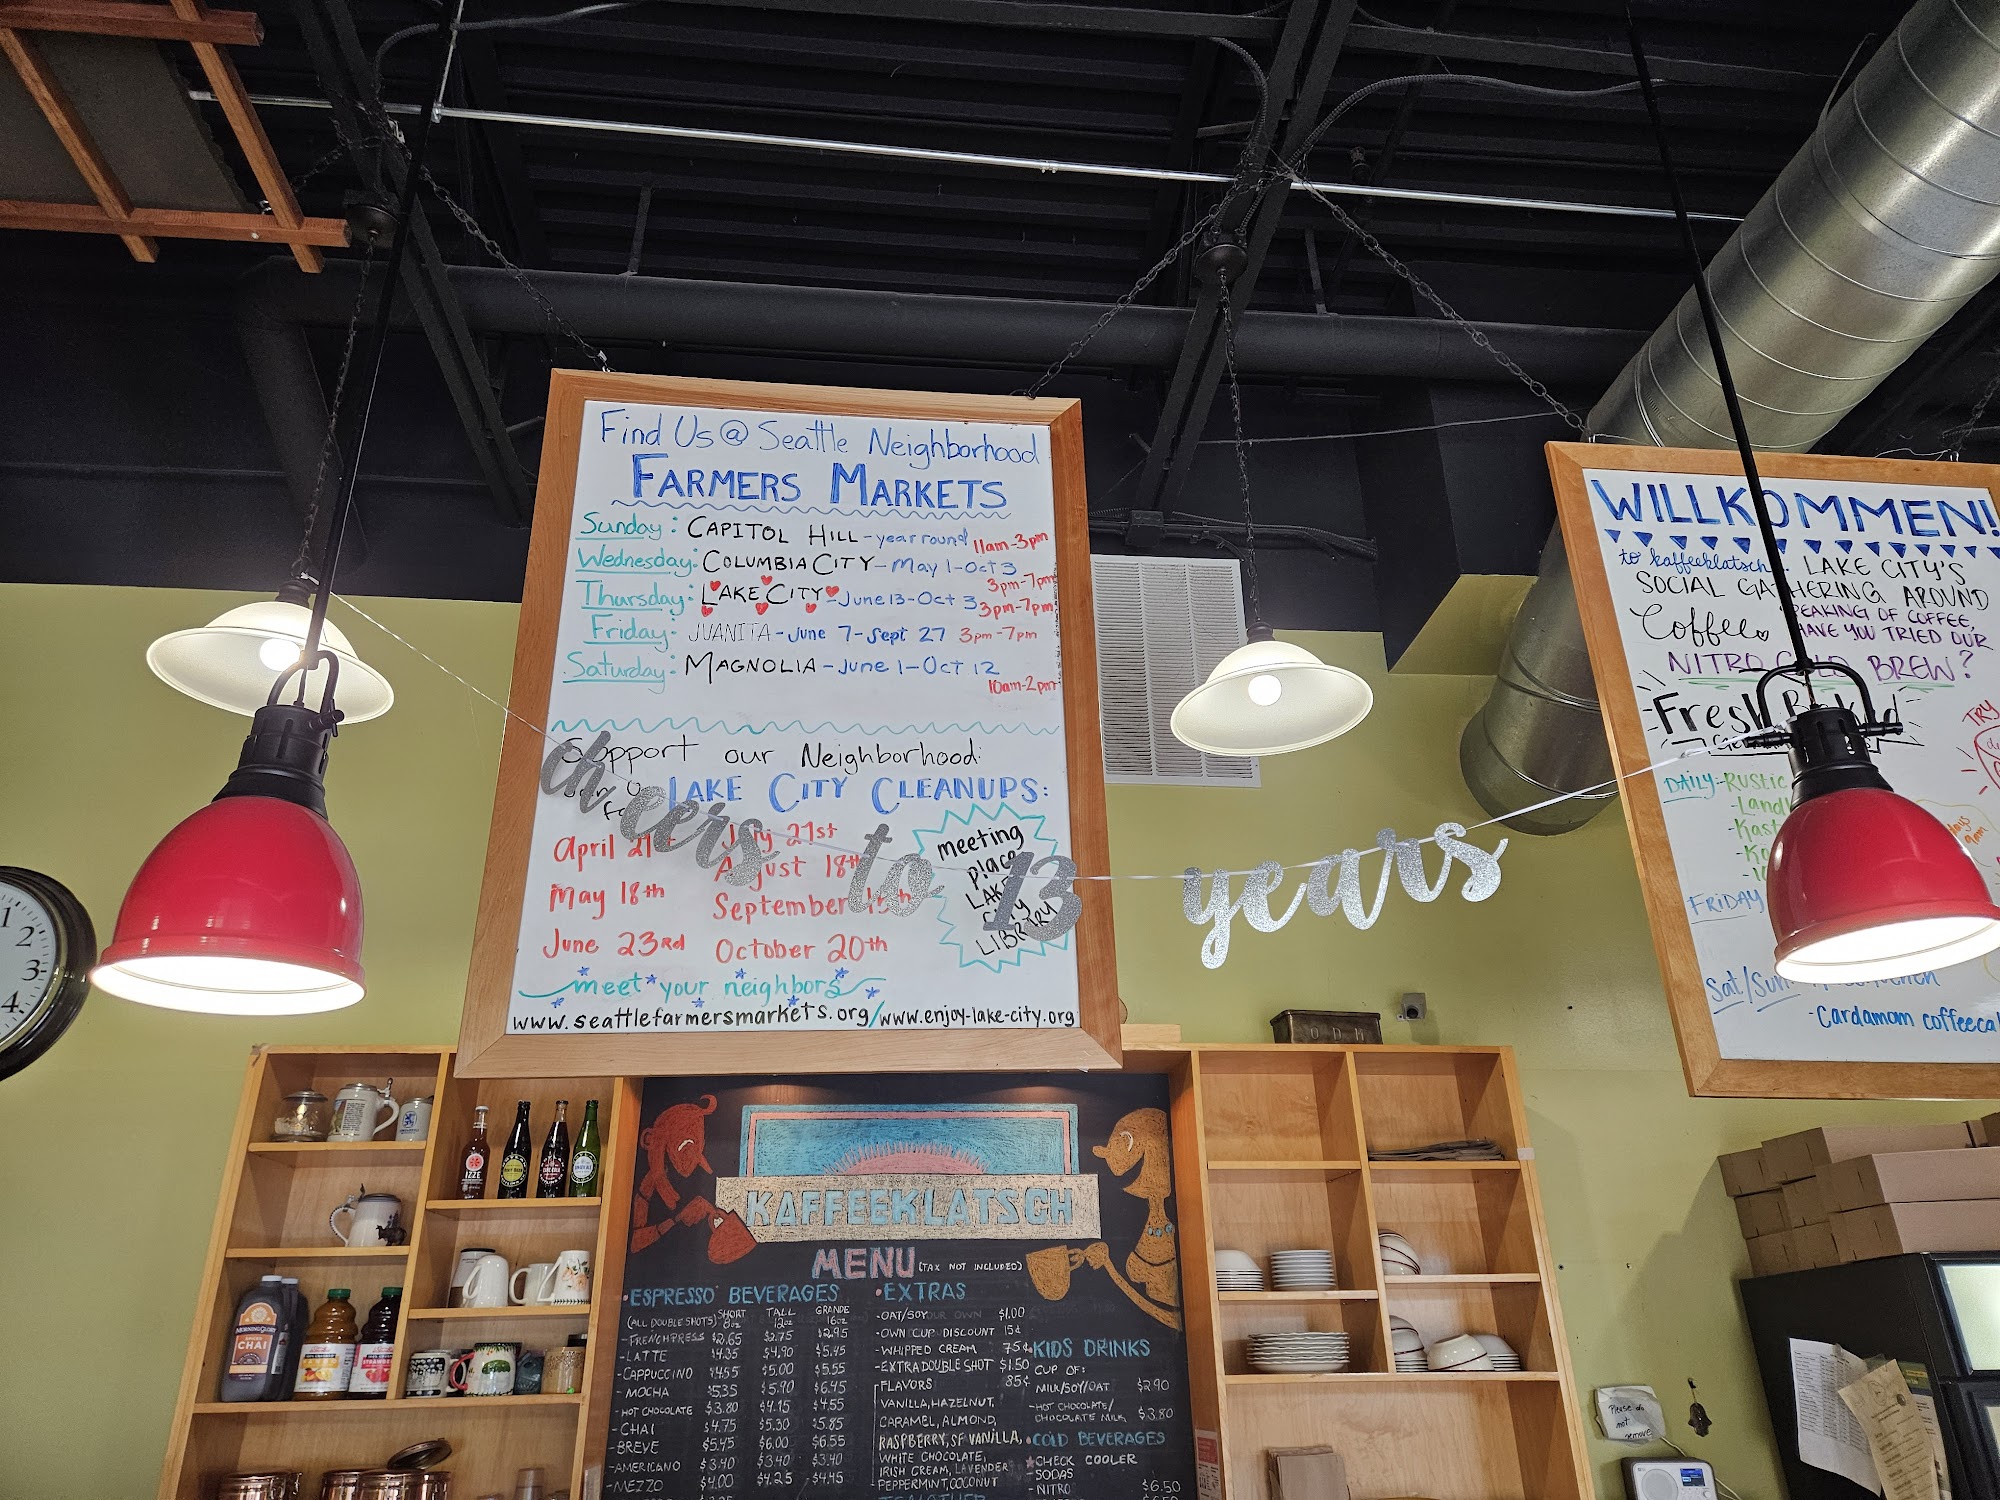 Find Us @ Seattle Neighborhood
FARMERS MARKETS
Sunday: CAPITOL HILL - year round 11am-3pm
Wednesday: COLUMBIA CITY - May 1-Oct 3
3pm-7pm
Thursday: LAKE CITY - June 13-Oct 3 3pm-7pm
Friday: JUANITA - June 7-Sept 27 3pm-7pm
Saturday: MAGNOLIA - June 1-Oct 12
10am-2pm
Support our Neighborhood:
LAKE CITY CLEANUPS:
April 21st July 21st
May 18th August 18th
September 15th
June 23rd October 20th
meeting
place
LAKE
CITY
LIBRARY
meet your neighbors
www.seattlefarmersmarkets.org/www.enjoy-lake-city.org
cheers to 13 years
WILLKOMMEN!
to kaffeeklatsch - LAKE CITY'S
SOCIAL GATHERING AROUND
Coffee SPEAKING OF COFFEE,
HAVE YOU TRIED OUR
NITRO COLD BREW?
Fresh Baked
TRY
DAILY - RUSTIC
FRIDAY
Sat/Sun
- Cardamom coffeeca
1
2
3
4
ODM
IZZE
MORNING GLORY
CHAI
KAFFEEKLATSCH
MENU (TAX NOT INCLUDED)
• ESPRESSO BEVERAGES
(ALL DOUBLE SHOTS) SHORT 8oz TALL 12oz GRANDE 16oz
- FRENCH PRESS $2.65 $2.75 $2.95
- LATTE $4.35 $4.90 $5.45
- CAPPUCCINO $4.55 $5.00 $5.55
- MOCHA $5.35 $5.90 $6.45
- HOT CHOCOLATE $3.80 $4.15 $4.55
- CHAI $4.75 $5.30 5.85
- BREVE $5.45 $6.00 $6.55
- AMERICANO $3.40 $3.40 $3.40
- MEZZO $4.00 $4.25 - $4.45
• EXTRAS
- OAT/SOY $1.00
- OWN CUP DISCOUNT 15¢
- WHIPPED CREAM 75¢
- EXTRA DOUBLE SHOT $1.50
FLAVORS 85¢
VANILLA, HAZELNUT,
CARAMEL, ALMOND,
RASPBERRY, SF VANILLA,
WHITE CHOCOLATE,
IRISH CREAM, LAVENDER
PEPPERMINT, COCONUT
• KIDS DRINKS
CUP OF:
MILK/SOY/OAT $2.90
- HOT CHOCOLATE/
CHOCOLATE MILK $3.80
• COLD BEVERAGES
CHECK COOLER
- SODAS
- NITRO $6.50
Please do
not
remove